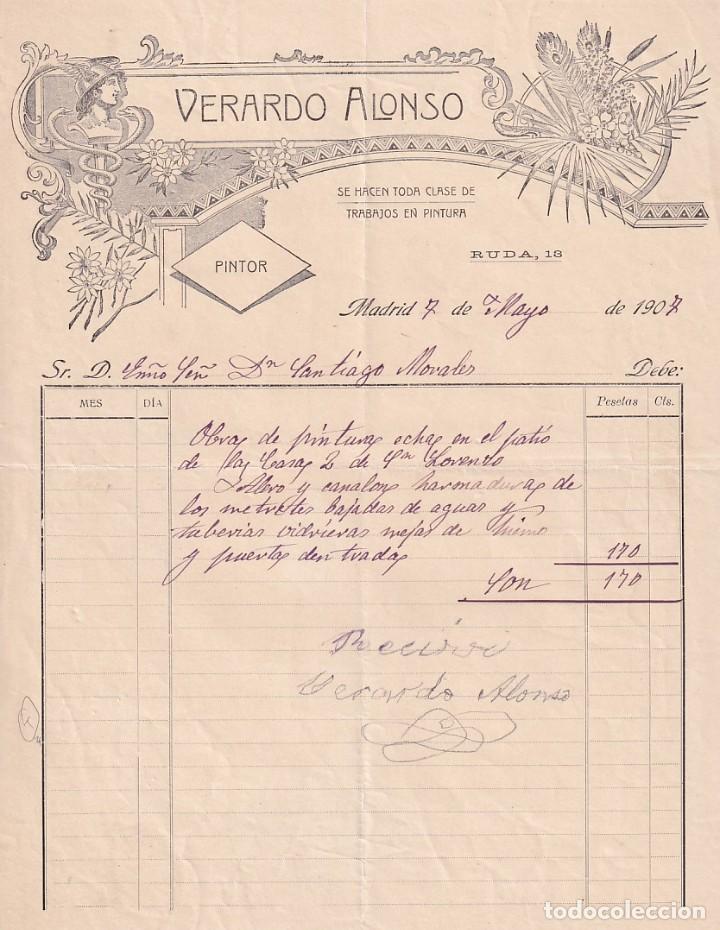 VERARDO ALONSO
SE HACEN TODA CLASE DE
TRABAJOS EN PINTURA
PINTOR
RUDA, 13
Madrid 7 de Mayo de 1907
Sr. D. Dn Santiago Morales Debe:
MES DÍA Pesetas Cts.
Obras de pinturas echas en el patio
de las Casas 2 de Sn Lorenzo
Alero y canalons harmaduras de
los metretes bajadas de aguas y
tuberias vidrieras rejas de
y puertas den tradas 170
Son 170
Recivi
Verardo Alonso
todocoleccion